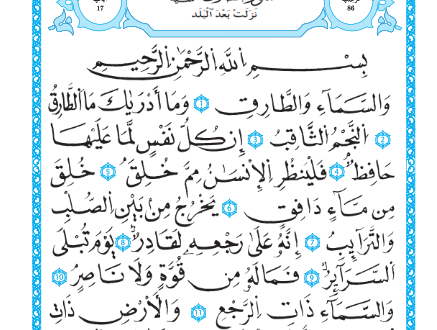 86
17
نَزَلَتْ بَعْدَ الْبَلَد
بِسْمِ اللَّهِ الرَّحْمَٰنِ الرَّحِيمِ
وَالسَّمَاءِ وَالطَّارِقِ ١ وَمَا أَدْرَيٰكَ مَا الطَّارِقُ
٢ النَّجْمُ الثَّاقِبُ ٣ إِن كُلُّ نَفْسٍ لَّمَا عَلَيْهَا
حَافِظٌ ٤ فَلْيَنظُرِ الْإِنسَانُ مِمَّ خُلِقَ ٥ خُلِقَ
مِن مَّاءٍ دَافِقٍ ٦ يَخْرُجُ مِنْ بَيْنِ الصُّلْبِ
وَالتَّرَائِبِ ٧ إِنَّهُ عَلَىٰ رَجْعِهِ لَقَادِرٌ ٨ يَوْمَ تُبْلَى
السَّرَائِرُ ٩ فَمَا لَهُ مِن قُوَّةٍ وَلَا نَاصِرٍ ١٠
وَالسَّمَاءِ ذَاتِ الرَّجْعِ ١١ وَالْأَرْضِ ذَاتِ